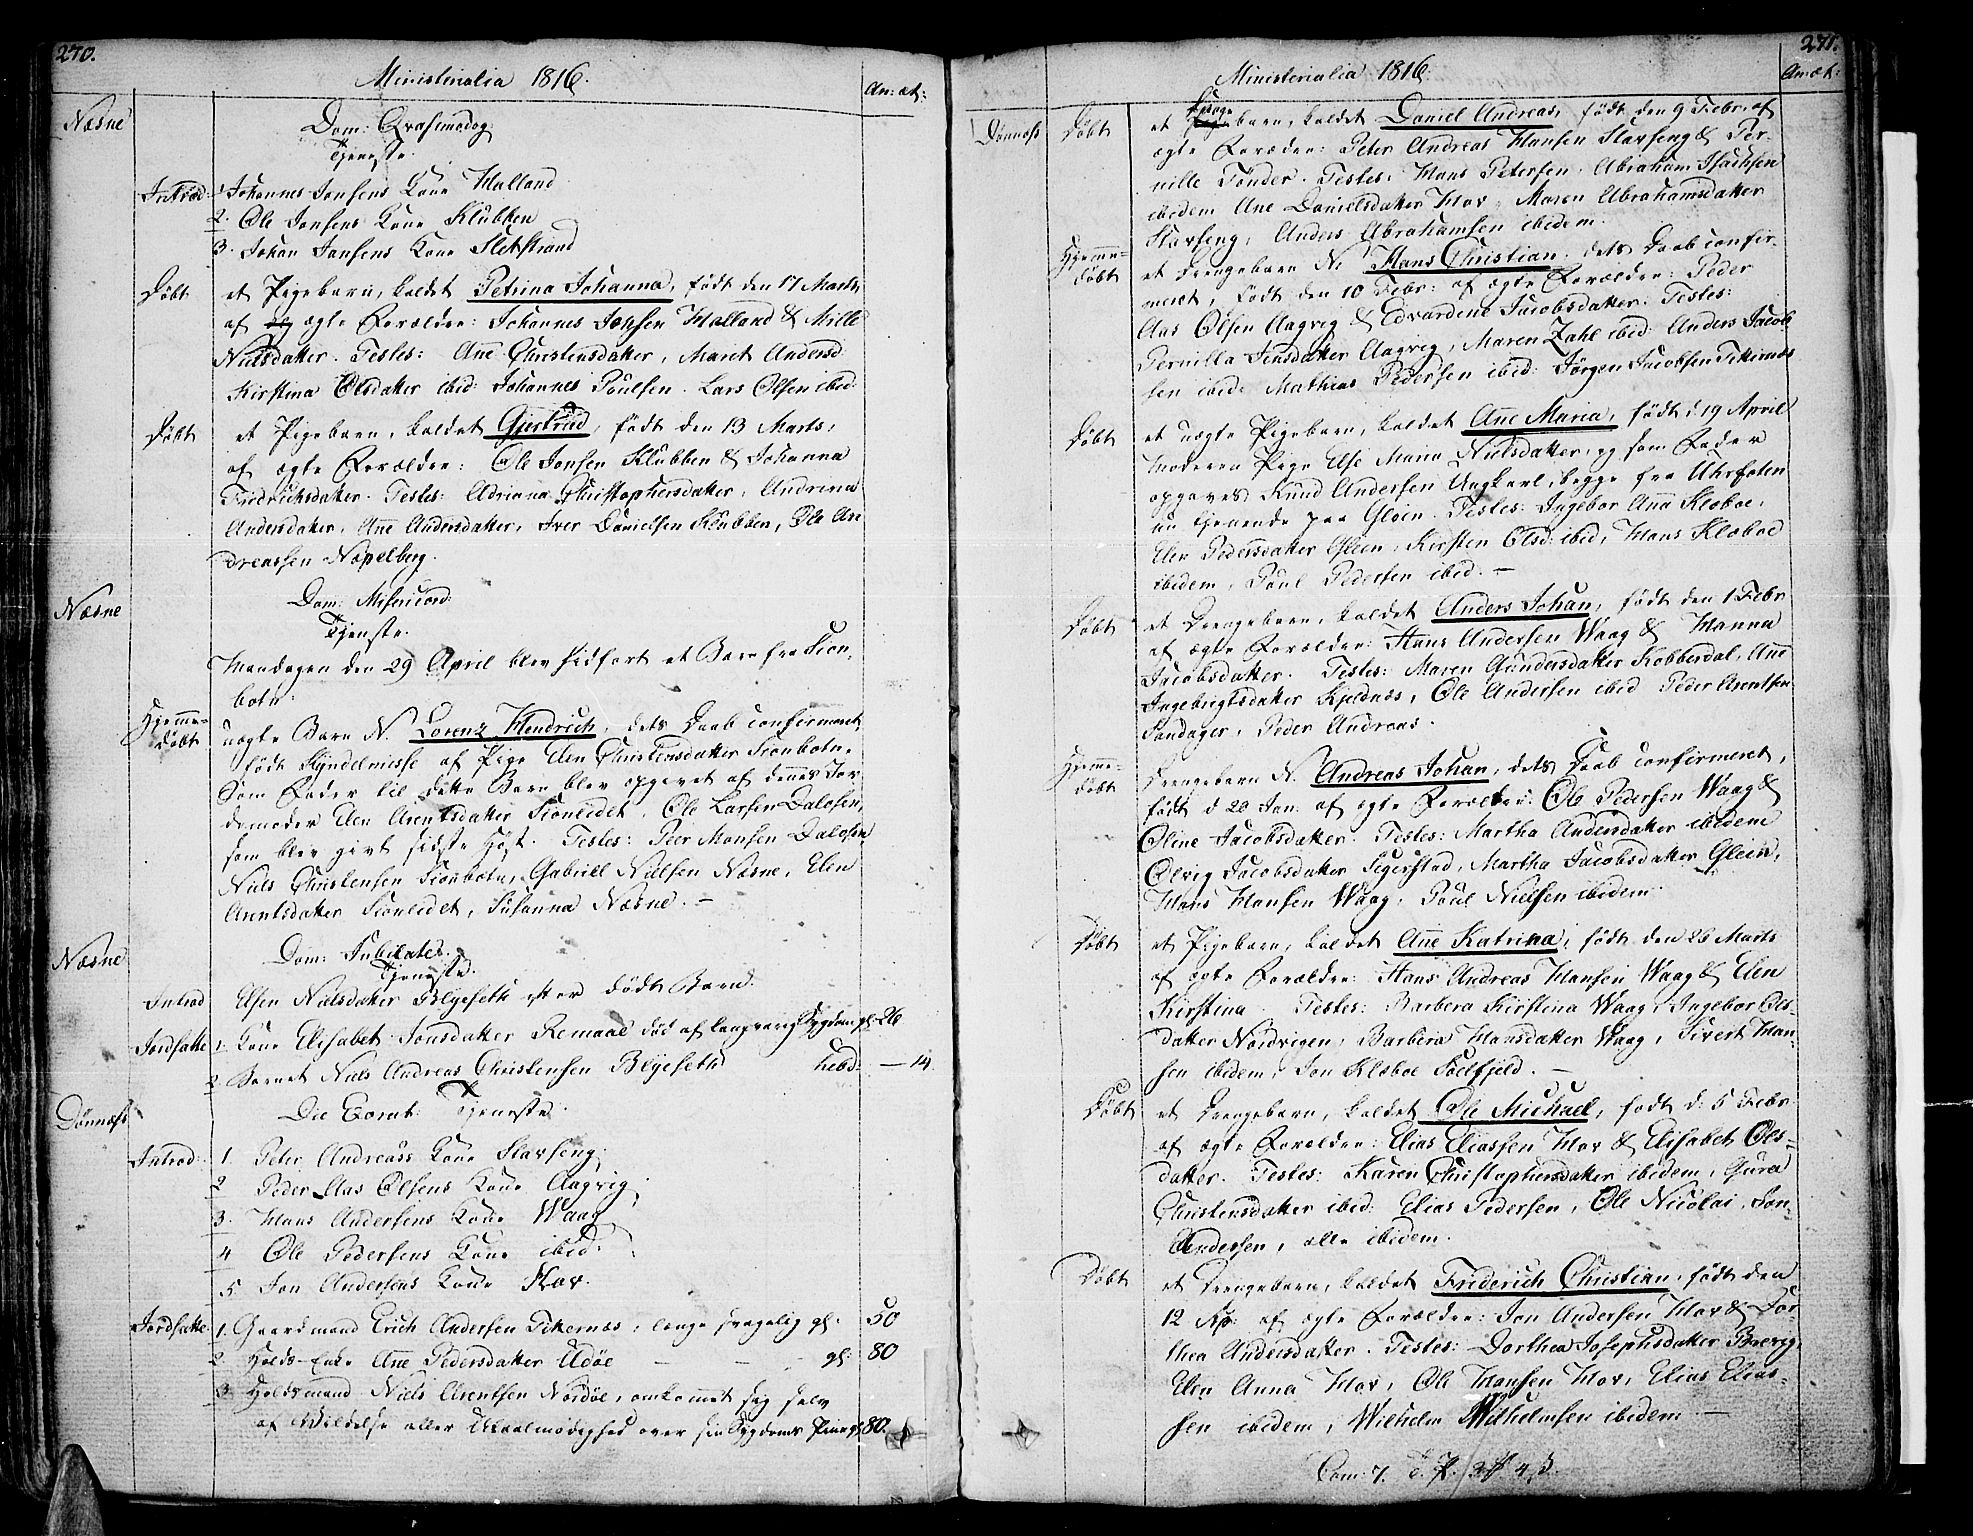 270.
Ministerialia 1816.
An: æt:
Næsne
Dom: Qvasimodog
Tjeneste.
Introd: 1 Johannes Jonsens Kone Halland
2. Ole Jonsens Kone Klubben
3. Johan Jansens Kone Sletstrand
Døbt et Pigebarn, kaldet Petrina Johanna, født den 17 Marts
af ægte Forældre: Johannes Jonsen Halland & Mille
Nielsdatter. Testes: Ane Christensdatter, Maret Andersd
Kirstina Olsdatter ibid: Johannes Poulsen. Lars Olsen ibid
Døbt et Pigebarn, kaldet Gjertrud, født den 13 Marts,
af ægte Forældre: Ole Jonsen Klubben & Johanna
Fridrichsdatter. Testes: Adriana Christophersdatter, Andrina
Andersdatter, Ane Andersdatter, Iver Danielsen Klubben, Ole An
dreassen Nøpelberg.
Næsne
Dom: Misericord:
Tjeneste.
Mandagen den 29 April blev hidført et Barn fra Sion,
botn:
Hjemme-
døbt
uægte Barn N. Lorenz Hendrich, dets Daab confirmeret,
født Kyndelmisse af Pige Elen Christensdatter Sionbotn.
Som Fader til dette Barn blev opgivet af dennes Jor
demoder Elen Arentsdatter Sionlidet, Ole Larsen Dalosen,
som blev givt sidste Høst. Testes: Peer Monsen Dalosen
Niels Christensen Sionbotn, Gabriel Nielsen Næsne, Elen
Arentsdatter Sionlidet, Susanna Næsne. -
Næsne
Dom: Jubilate.
Tjeneste.
Introd Elsen Nielsdatter Blyeseth efter dødt Barn.
Jordfæstet 1. Kone Elisabet Jonsdatter Remaae død af langvarig Sygdom gl: 26
2. Barnet Niels Andreas Christensen Blyeseth hebd: - 14.
Dønnæss
Die Correct: Tjeneste.
Introd: 1. Peter Andreass Kone Slavseng
2 Peder Aas Olsens Kone Aagvig
3. Hans Andersens Kone Waag
4 Ole Pedersens Kone ibid.
5. Jon Andersens Kone Hov.
Jordfæstet 1. Gaardmand Erich Andersen Tekernæs, længe svagelig gl. 50
2. Huusds-Enke Ane Pedersdatter Udøe - - gl: 80
3. Huusmand Niels Arentsen Nordøe, omkommet sig selv
af Vildelse eller Utaalmodighed over sin Sygdoms Piner gl 80.
271.
Ministerialia 1816.
An: æt:
Dønnæss
Døbt et Drengebarn, kaldet Daniel Andreas, født den 9 Febr. af
ægte Forældre: Peter Andreas Hansen Slavseng & Per-
nille Tønder. Testes: Hans Petersen, Abraham Isachsen
ibidem Ane Danielsdatter Hov, Maren Abrahamsdatter
Slavseng, Anders Abrahamsen ibidem.
Hjemme-
døbt
et Drengebarn N. Hans Christian, dets Daab confir-
meret, født den 10 Febr: af ægte Forældre: Peder
Aas Olsen Aagvig & Edvardine Jacobsdatter. Testes:
Pernilla Jensdatter Aagvig, Maren Zahl ibid: Anders Jacob
sen ibid. Mathias Pedersen ibid: Jørgen Jacobsen Tekernæs
Døbt et uægte Pigebarn, kaldet Ane Maria, født d 19 April
Moderen Pige Else Maria Nielsdatter, og som Fader
opgaves Knud Andersen Ungkarl, begge fra Uhrfoten
nu tjenende paa Gleen. Testes: Ingebor Ana Kloboe,
Elen Pedersdatter Gleen, Kirsten Olsd: ibid, Hans Kloboe
ibidem, Poul Pedersen ibid. -
Døbt et Drengebarn, kaldet Anders Johan, født den 1 Febr
af ægte Forældre: Hans Andersen Waag & Hanna
Jacobsdatter. Testes: Maren Gundersdatter Kobberdal, Ane
Ingebrigtsdatter Kjeldnæs, Ole Andersen ibid Peder Arentsen
Sandager, Peder Andreas.
Hjemme-
døbt
Drengebarn N. Andreas Johan, dets Daab confirmeret,
født d 20 Jan. af ægte Forældre: Ole Pedersen Waag &
Oline Jacobsdatter. Testes: Martha Andersdatter ibidem
Olvig Jacobsdatter Sigerstad, Martha Jacobsdatter Gleen,
Hans Hansen Waag, Poul Nielsen ibidem.
Døbt et Pigebarn, kaldet Ane Katrina, født den 26 Marts
af ægte Forældre: Hans Andreas Hansen Waag & Elen
Kirstina. Testes: Barbera Kirstina Waag, Ingebor Ols-
datter Nordvigen, Barbera Hansdatter Waag, Sivert Han-
sen ibidem, Jon Kloboe Søelfjeld. -
Døbt et Drengebarn, kaldet Ole Michael, født d. 5 Febr
af ægte Forældre: Elias Eliassen Hov & Elisabet Ols-
datter. Testes: Karen Christophersdatter ibidem, Gura
Christensdatter ibid: Elias Pedersen, Ole Nicolai, Jon
Andersen, alle ibidem.
Døbt et Drengebarn, kaldet Friderich Christian, født den
12 Ap: af ægte Forældre: Jon Andersen Hov & Dor-
thea Andersdatter. Testes: Dorthea Josephsdatter Brevig,
Elen Anna Hov, Ole Hansen Hov, Elias Elias-
sen ibidem, Wilhelm Wilhelmsen ibidem -
Com: 7.